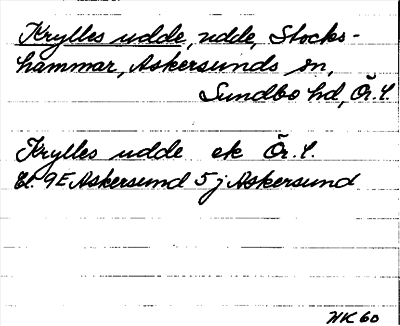 Krylles udde, udde, Stocks-
hammar, Askersunds sn,
Sundbo hd, Ör. l.
Krylles udde ek Ör. l.
Bl. 9E Askersund 5 j Askersund
NK 60